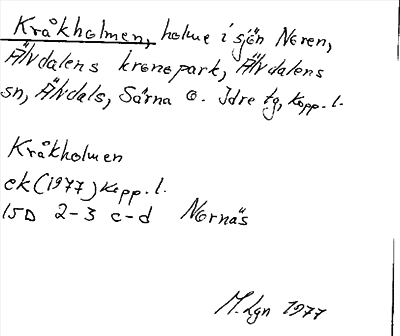 Kråkholmen, holme i sjön Noren,
Älvdalens kronopark, Älvdalens
sn, Älvdals, Särna o. Idre tg, Kopp. l.
Kråkholmen
ek (1977) Kopp. l.
15D 2-3 c-d Nornäs
M. Lgn 1977